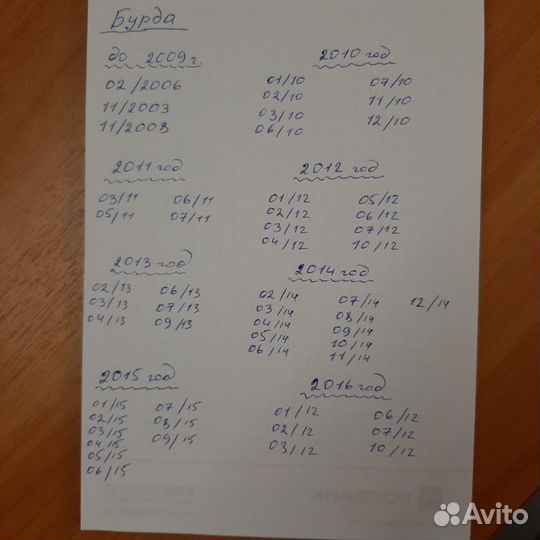 Бурда
до 2009 г.
02/2006
11/2003
11/2008
2010 год
01/10 07/10
02/10 11/10
03/10 12/10
06/10
2011 год
03/11 06/11
05/11 07/11
2012 год
01/12 05/12
02/12 06/12
03/12 07/12
04/12 10/12
2013 год
02/13 06/13
03/13 07/13
04/13 09/13
2014 год
02/14 07/14 12/14
03/14 08/14
04/14 09/14
05/14 10/14
06/14 11/14
2015 год
01/15 07/15
02/15 08/15
03/15 09/15
04/15
05/15
06/15
2016 год
01/12 06/12
02/12 07/12
03/12 10/12
РОСБАНК
Avito